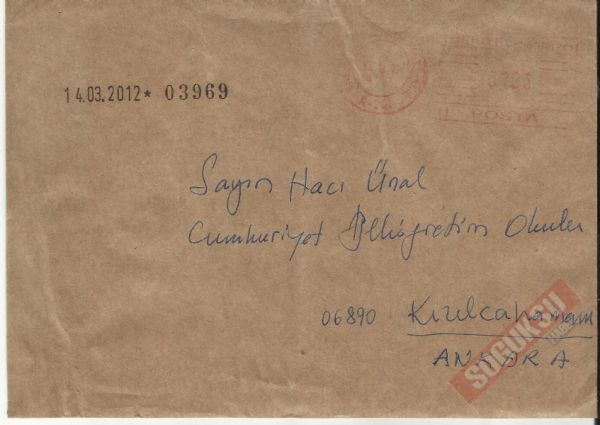 14.03.2012* 03969
POSTA
Sayın Hacı Ünal
Cumhuriyet İlköğretim Okulu
06890 Kızılcahamam
ANKARA
SOĞUKSU